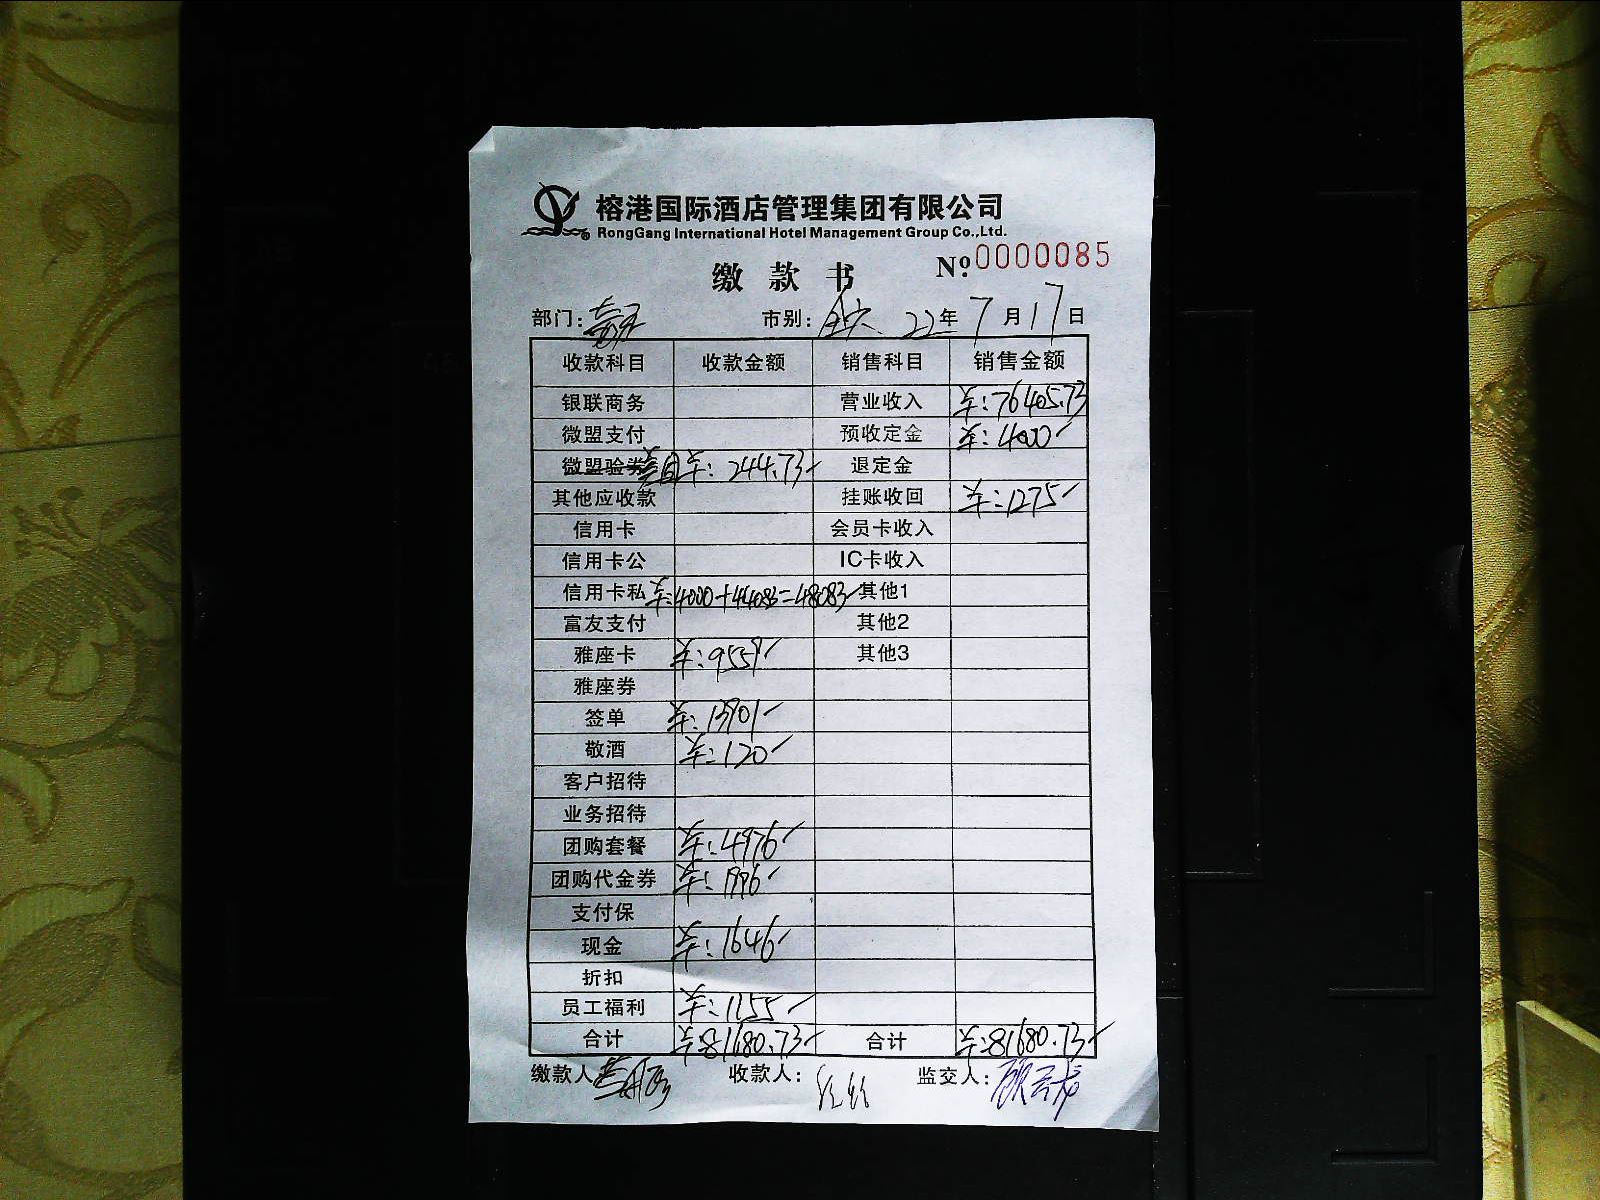 榕港国际酒店管理集团有限公司
RongGang International Hotel Management Group Co.,Ltd.
缴款书 Nº 0000085
部门: 市别: 22年7月17日
收款科目 收款金额 销售科目 销售金额
银联商务 营业收入 卡:76405.73
微盟支付 预收定金 卡:4000
微盟验券 卡:244.73 退定金
其他应收款 挂账收回 卡:1275
信用卡 会员卡收入
信用卡公 IC卡收入
信用卡私 卡:4000+44083=48083 其他1
富友支付 其他2
雅座卡 卡:9559 其他3
雅座券
签单 卡:13901
敬酒 卡:120
客户招待
业务招待
团购套餐 卡:4976
团购代金券 卡:1996
支付保
现金 卡:1646
折扣
员工福利 卡:1155
合计 卡:81680.73 合计 卡:81680.73
缴款人 收款人: 监交人: